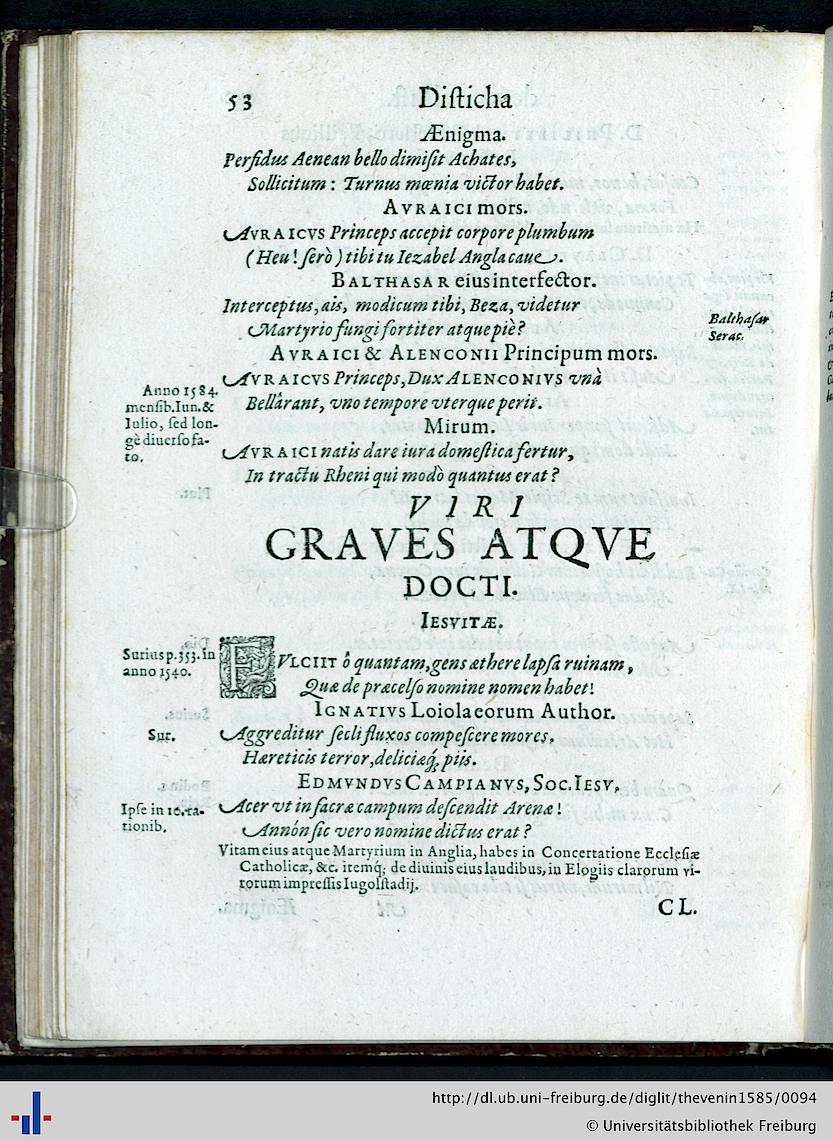 53 Diſticha
Ænigma.
Perfidus Aenean bello dimiſit Achates,
Sollicitum : Turnus mœnia victor habet.
AVRAICI mors.
AVRAICVS Princeps accepit corpore plumbum
(Heu! ſerò) tibi tu Iezabel Angla caue.
BALTHASAR eius interfector.
Interceptus, ais, modicum tibi, Beza, videtur
Martyrio fungi fortiter atque piè?
Balthaſar
Serac.
AVRAICI & ALENCONII Principum mors.
AVRAICVS Princeps, Dux ALENCONIVS vnà
Bellârant, vno tempore vterque perit.
Anno 1584.
menſib. Iun. &
Iulio, ſed lon-
gè diuerſo fa-
to.
Mirum.
AVRAICI natis dare iura domeſtica fertur,
In tractu Rheni qui modò quantus erat?
VIRI
GRAVES ATQVE
DOCTI.
IESVITÆ.
Surius p. 353. in
anno 1540.
FVLCIIT ô quantam, gens æthere lapſa ruinam,
Quæ de præcelſo nomine nomen habet!
IGNATIVS Loiola eorum Author.
Sur.
Aggreditur ſecli fluxos compeſcere mores,
Hæreticis terror, deliciæq́; piis.
EDMVNDVS CAMPIANVS, SOC. IESV.
Ipſe in 10. ra-
tionib.
Acer vt in ſacræ campum deſcendit Arenæ!
Annón ſic vero nomine dictus erat?
Vitam eius atque Martyrium in Anglia, habes in Concertatione Eccleſiæ
Catholicæ, &c. itemq́; de diuinis eius laudibus, in Elogiis clarorum vi-
rorum impreſſis Iugolſtadij.
CL.
http://dl.ub.uni-freiburg.de/diglit/thevenin1585/0094
© Universitätsbibliothek Freiburg